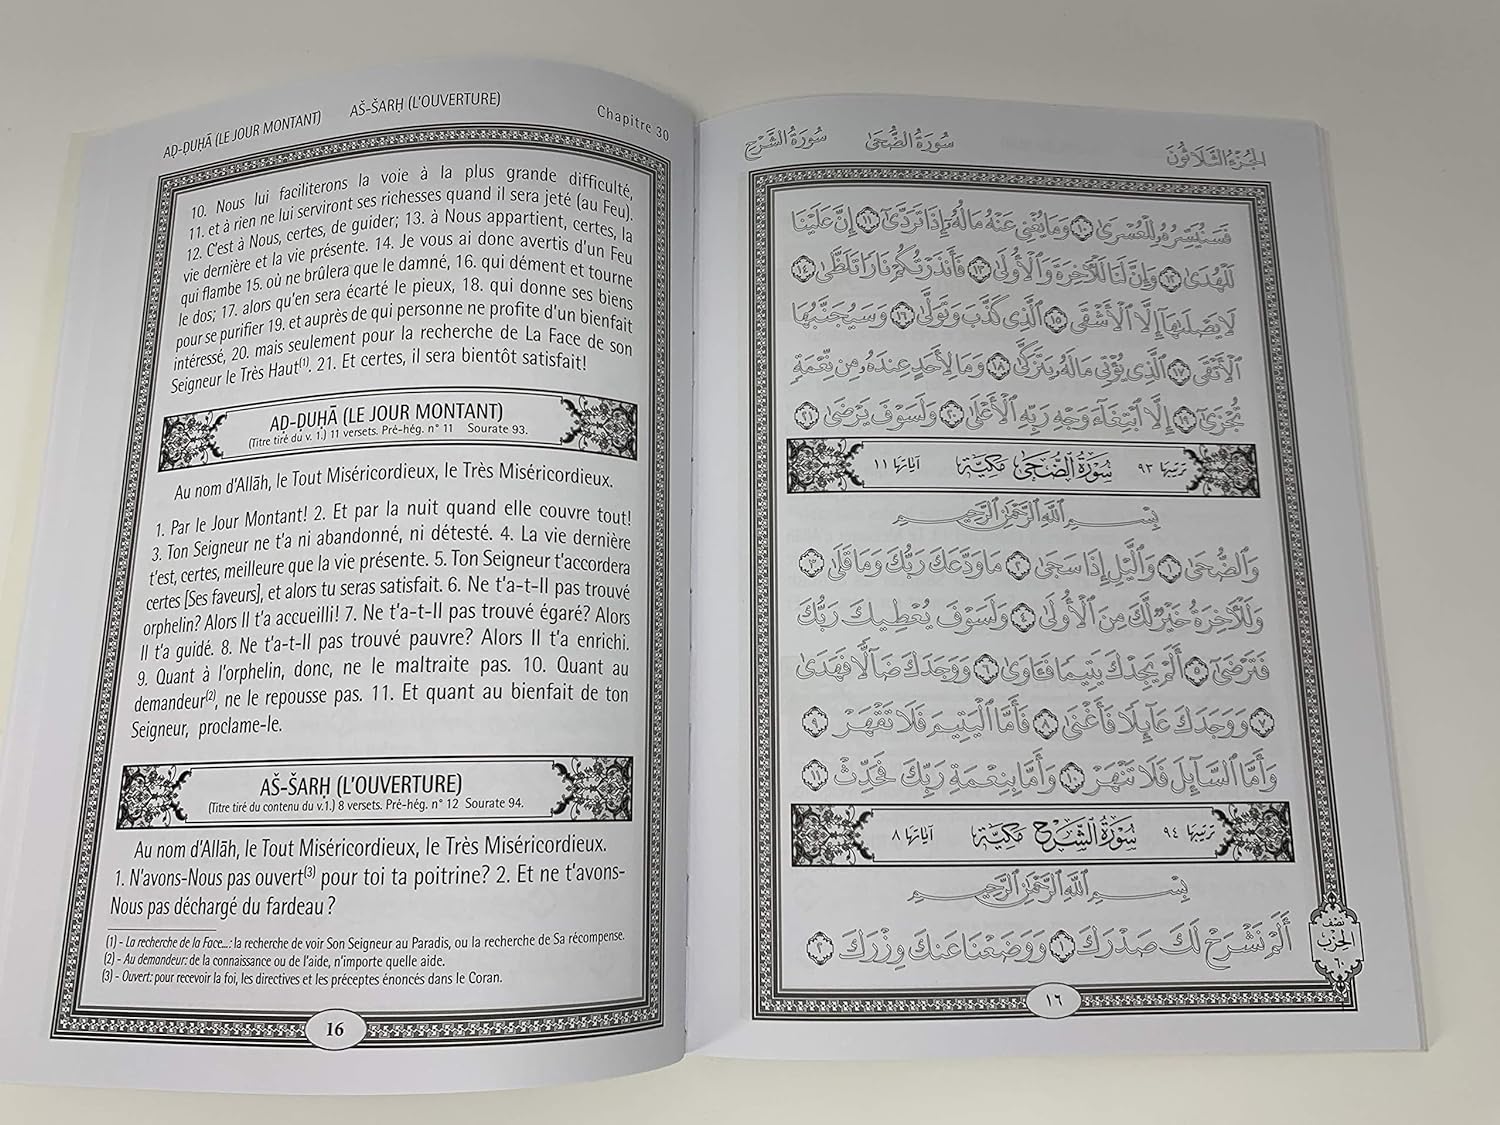 AḌ-ḌUḤĀ (LE JOUR MONTANT) AŠ-ŠARḤ (L'OUVERTURE) Chapitre 30
10. Nous lui faciliterons la voie à la plus grande difficulté,
11. et à rien ne lui serviront ses richesses quand il sera jeté (au Feu).
12. C'est à Nous, certes, de guider; 13. à Nous appartient, certes, la
vie dernière et la vie présente. 14. Je vous ai donc avertis d'un Feu
qui flambe 15. où ne brûlera que le damné, 16. qui dément et tourne
le dos; 17. alors qu'en sera écarté le pieux, 18. qui donne ses biens
pour se purifier 19. et auprès de qui personne ne profite d'un bienfait
intéressé, 20. mais seulement pour la recherche de La Face de son
Seigneur le Très Haut(1). 21. Et certes, il sera bientôt satisfait!
AḌ-ḌUḤĀ (LE JOUR MONTANT)
(Titre tiré du v. 1.) 11 versets. Pré-hég. n° 11 Sourate 93.
Au nom d'Allāh, le Tout Miséricordieux, le Très Miséricordieux.
1. Par le Jour Montant! 2. Et par la nuit quand elle couvre tout!
3. Ton Seigneur ne t'a ni abandonné, ni détesté. 4. La vie dernière
t'est, certes, meilleure que la vie présente. 5. Ton Seigneur t'accordera
certes [Ses faveurs], et alors tu seras satisfait. 6. Ne t'a-t-Il pas trouvé
orphelin? Alors Il t'a accueilli! 7. Ne t'a-t-Il pas trouvé égaré? Alors
Il t'a guidé. 8. Ne t'a-t-Il pas trouvé pauvre? Alors Il t'a enrichi.
9. Quant à l'orphelin, donc, ne le maltraite pas. 10. Quant au
demandeur(2), ne le repousse pas. 11. Et quant au bienfait de ton
Seigneur, proclame-le.
AŠ-ŠARḤ (L'OUVERTURE)
(Titre tiré du contenu du v.1.) 8 versets. Pré-hég. n° 12 Sourate 94.
Au nom d'Allāh, le Tout Miséricordieux, le Très Miséricordieux.
1. N'avons-Nous pas ouvert(3) pour toi ta poitrine? 2. Et ne t'avons-
Nous pas déchargé du fardeau ?
(1) - La recherche de la Face...: la recherche de voir Son Seigneur au Paradis, ou la recherche de Sa récompense.
(2) - Au demandeur: de la connaissance ou de l'aide, n'importe quelle aide.
(3) - Ouvert: pour recevoir la foi, les directives et les préceptes énoncés dans le Coran.
16
الجُزْءُ الثَّلَاثُونَ سُورَةُ الضُّحَىٰ سُورَةُ الشَّرْحِ
فَسَنُيَسِّرُهُۥ لِلْعُسْرَىٰ ١٠ وَمَا يُغْنِى عَنْهُ مَالُهُۥٓ إِذَا تَرَدَّىٰٓ ١١ إِنَّ عَلَيْنَا
لَلْهُدَىٰ ١٢ وَإِنَّ لَنَا لَلْءَاخِرَةَ وَٱلْأُولَىٰ ١٣ فَأَنذَرْتُكُمْ نَارًا تَلَظَّىٰ ١٤
لَا يَصْلَىٰهَآ إِلَّا ٱلْأَشْقَى ١٥ ٱلَّذِى كَذَّبَ وَتَوَلَّىٰ ١٦ وَسَيُجَنَّبُهَا
ٱلْأَتْقَى ١٧ ٱلَّذِى يُؤْتِى مَالَهُۥ يَتَزَكَّىٰ ١٨ وَمَا لِأَحَدٍ عِندَهُۥ مِن نِّعْمَةٍ
تُجْزَىٰٓ ١٩ إِلَّا ٱبْتِغَآءَ وَجْهِ رَبِّهِ ٱلْأَعْلَىٰ ٢٠ وَلَسَوْفَ يَرْضَىٰ ٢١
ترتيبها ٩٣ سُورَةُ الضُّحَىٰ مَكِيَّة آياتها ١١
بِسْمِ ٱللَّهِ ٱلرَّحْمَٰنِ ٱلرَّحِيمِ
وَٱلضُّحَىٰ ١ وَٱلَّيْلِ إِذَا سَجَىٰ ٢ مَا وَدَّعَكَ رَبُّكَ وَمَا قَلَىٰ ٣
وَلَلْءَاخِرَةُ خَيْرٌ لَّكَ مِنَ ٱلْأُولَىٰ ٤ وَلَسَوْفَ يُعْطِيكَ رَبُّكَ
فَتَرْضَىٰٓ ٥ أَلَمْ يَجِدْكَ يَتِيمًا فَـَٔاوَىٰ ٦ وَوَجَدَكَ ضَآلًّا فَهَدَىٰ
٧ وَوَجَدَكَ عَآئِلًا فَأَغْنَىٰ ٨ فَأَمَّا ٱلْيَتِيمَ فَلَا تَقْهَرْ ٩
وَأَمَّا ٱلسَّآئِلَ فَلَا تَنْهَرْ ١٠ وَأَمَّا بِنِعْمَةِ رَبِّكَ فَحَدِّثْ ١١
ترتيبها ٩٤ سُورَةُ الشَّرْحِ مَكِيَّة آياتها ٨
بِسْمِ ٱللَّهِ ٱلرَّحْمَٰنِ ٱلرَّحِيمِ
أَلَمْ نَشْرَحْ لَكَ صَدْرَكَ ١ وَوَضَعْنَا عَنكَ وِزْرَكَ ٢
نصف
الحزب
٦٠
١٦